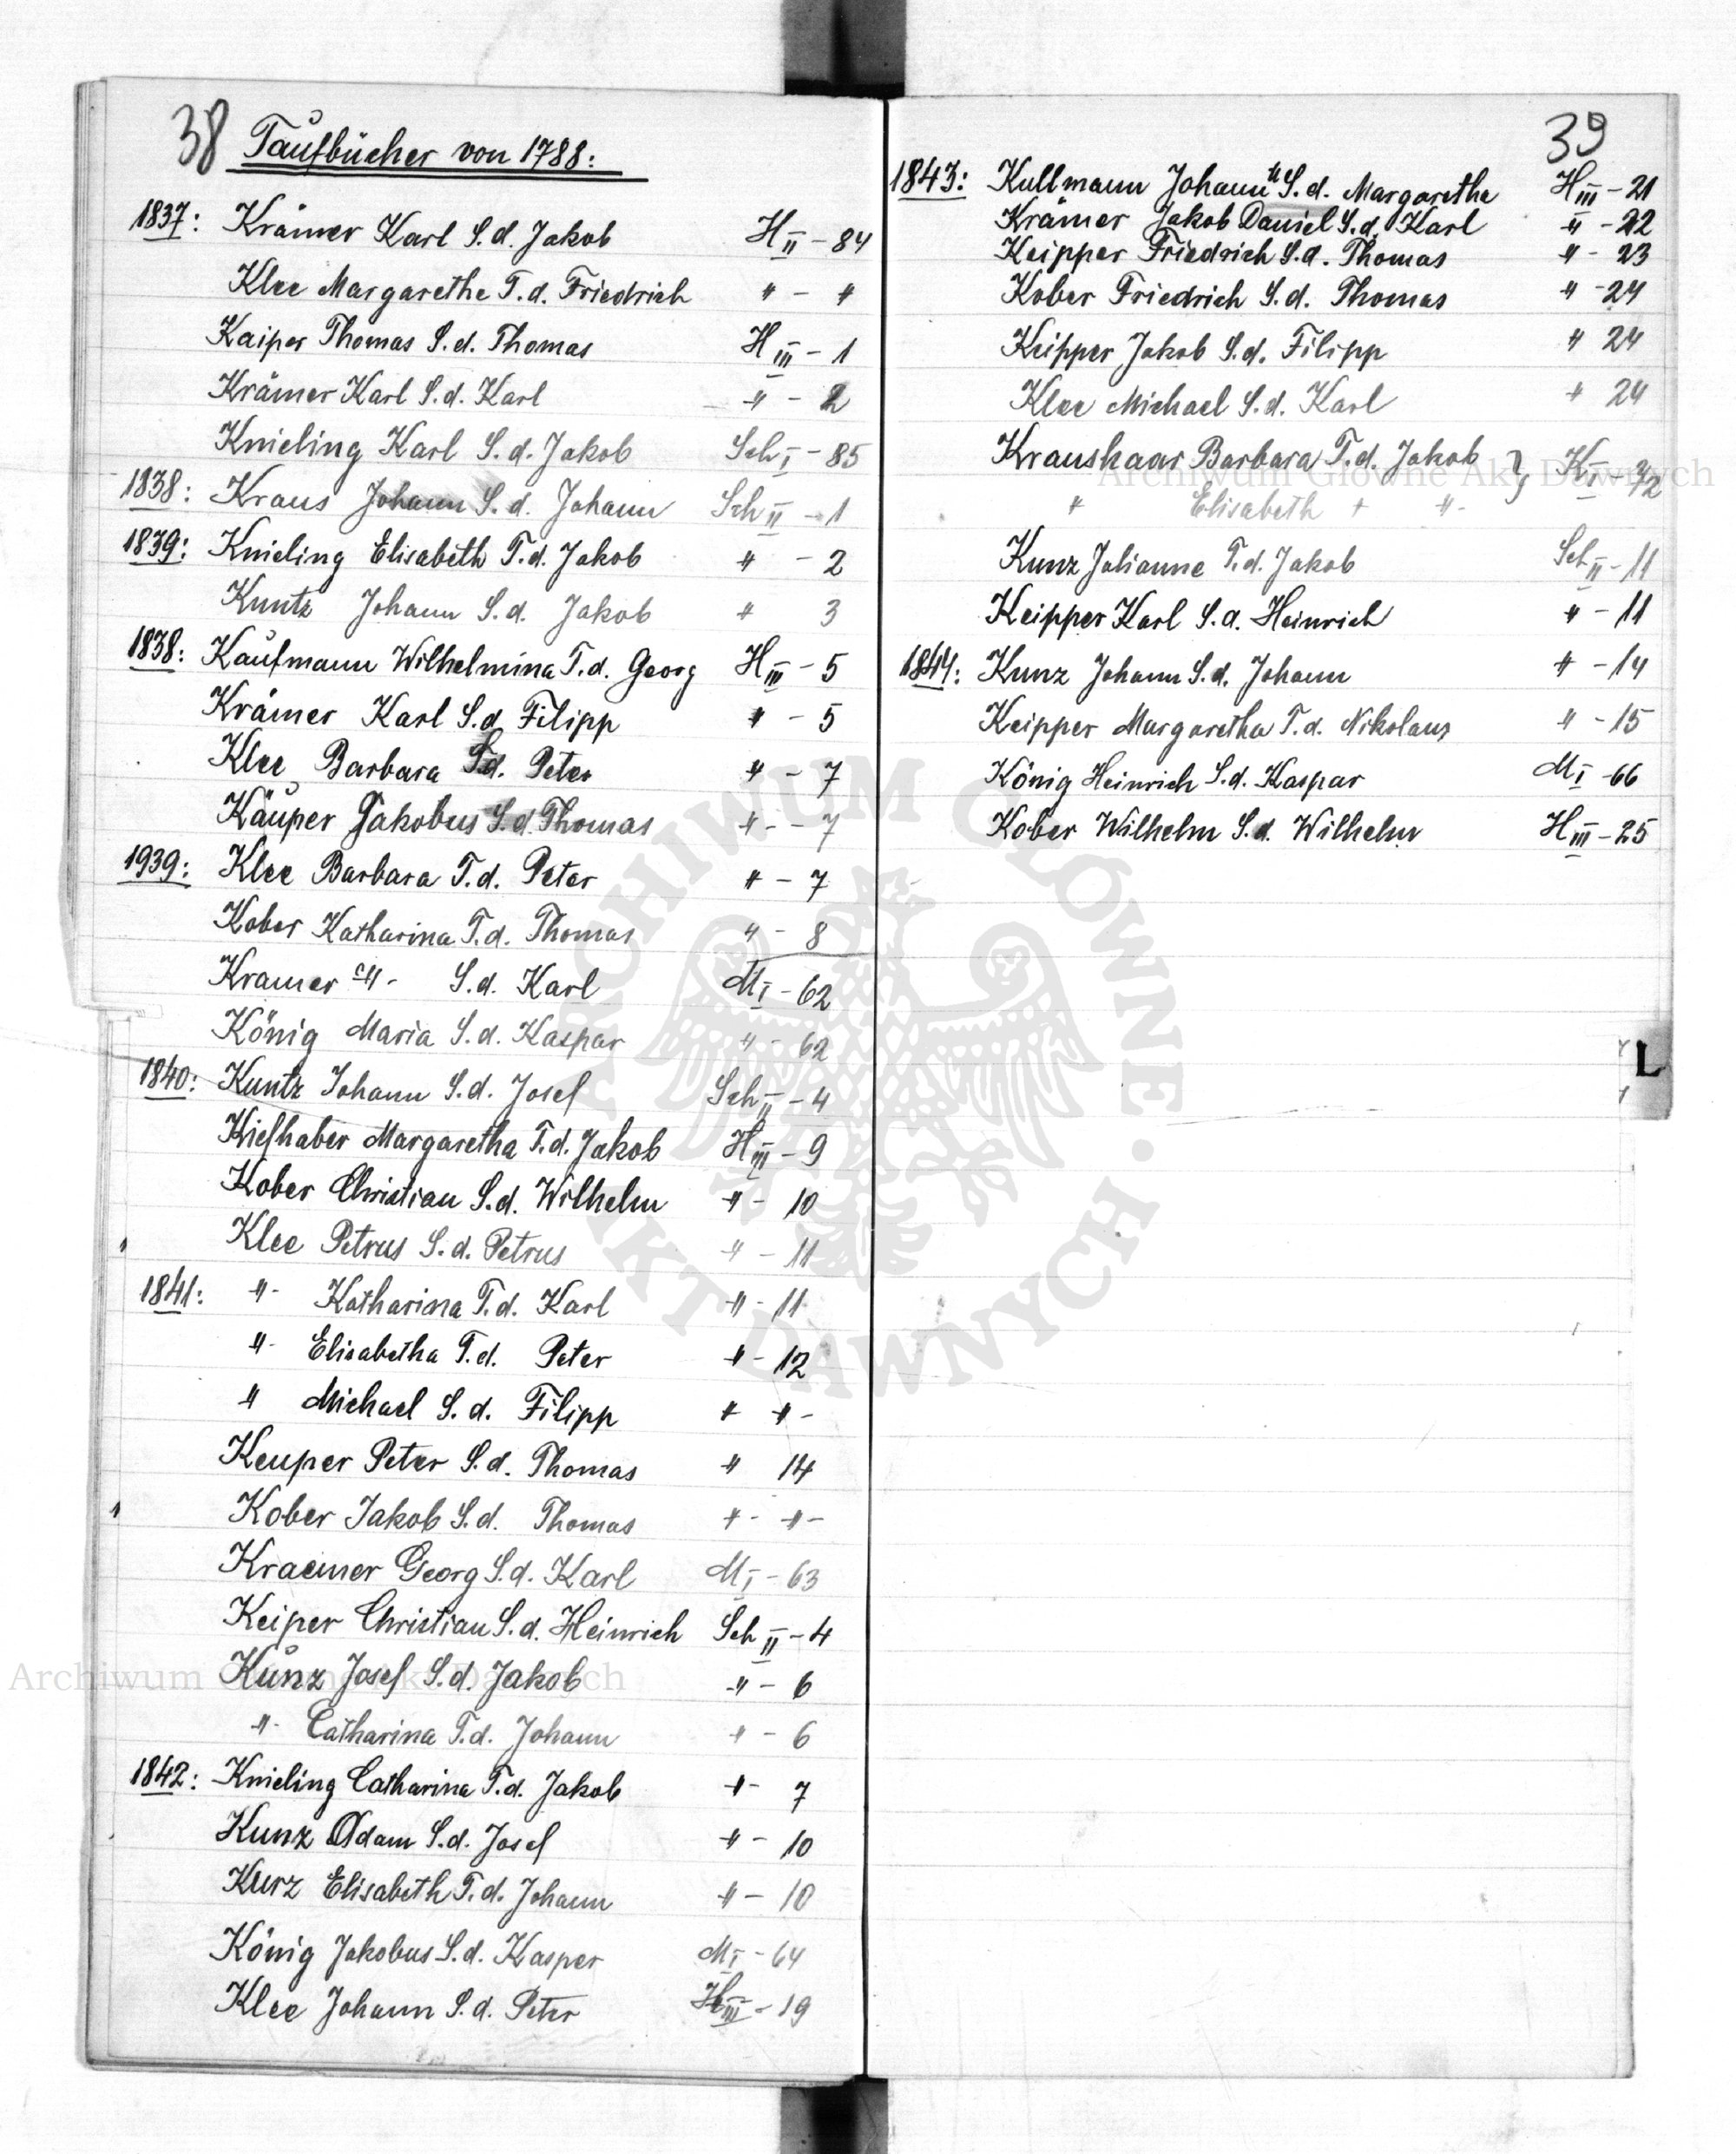 38 Taufbücher von 1788:
1837: Krämer Karl S. d. Jakob H II - 84
Klee Margarethe T. d. Friedrich " - "
Kaiper Thomas S. d. Thomas H III - 1
Krämer Karl S. d. Karl " - 2
Knieling Karl S. d. Jakob Sch I - 85
1838: Kraus Johann S. d. Johann Sch II - 1
1839: Knieling Elisabeth T. d. Jakob " - 2
Kuntz Johann S. d. Jakob " 3
1838: Kaufmann Wilhelmina T. d. Georg H III - 5
Krämer Karl S. d. Filipp " - 5
Klee Barbara T. d. Peter " - 7
Käuper Jakobus S. d. Thomas " - - 7
1939: Klee Barbara T. d. Peter " - 7
Kober Katharina T. d. Thomas " - 8
Kramer " - S. d. Karl M I - 62
König Maria S. d. Kaspar " - 62
1840: Kuntz Johann S. d. Josef Sch II - 4
Kiefhaber Margaretha T. d. Jakob H III - 9
Kober Christian S. d. Wilhelm " - 10
Klee Petrus S. d. Petrus " - 11
1841: " - Katharina T. d. Karl " - 11
" - Elisabetha T. d. Peter " - 12
" Michael S. d. Filipp " " -
Keuper Peter S. d. Thomas " 14
Kober Jakob S. d. Thomas " - " -
Kraemer Georg S. d. Karl M I - 63
Keiper Christian S. d. Heinrich Sch II - 4
Kunz Josef S. d. Jakob " - 6
" - Catharina T. d. Johann " - 6
1842: Knieling Catharina T. d. Jakob " - 7
Kunz Adam S. d. Josef " - 10
Kurz Elisabeth T. d. Johann " - 10
König Jakobus S. d. Kasper M I - 64
Klee Johann S. d. Peter H III - 19
39
1843: Kullmann Johann S. d. Margarethe H III - 21
Krämer Jakob Daniel S. d. Karl " - 22
Keipper Friedrich S. d. Thomas " - 23
Kober Friedrich S. d. Thomas " - 24
Keipper Jakob S. d. Filipp " 24
Klee Michael S. d. Karl " 24
Kraushaar Barbara T. d. Jakob } K I - 42
" Elisabeth " " -
Kunz Julianne T. d. Jakob Sch II - 11
Keipper Karl S. d. Heinrich " - 11
1844: Kunz Johann S. d. Johann " - 14
Keipper Margaretha T. d. Nikolaus " - 15
König Heinrich S. d. Kaspar M I - 66
Kober Wilhelm S. d. Wilhelm H III - 25
L
ARCHIWUM GŁÓWNE AKT DAWNYCH
Archiwum Główne Akt Dawnych
Archiwum Główne Akt Dawnych